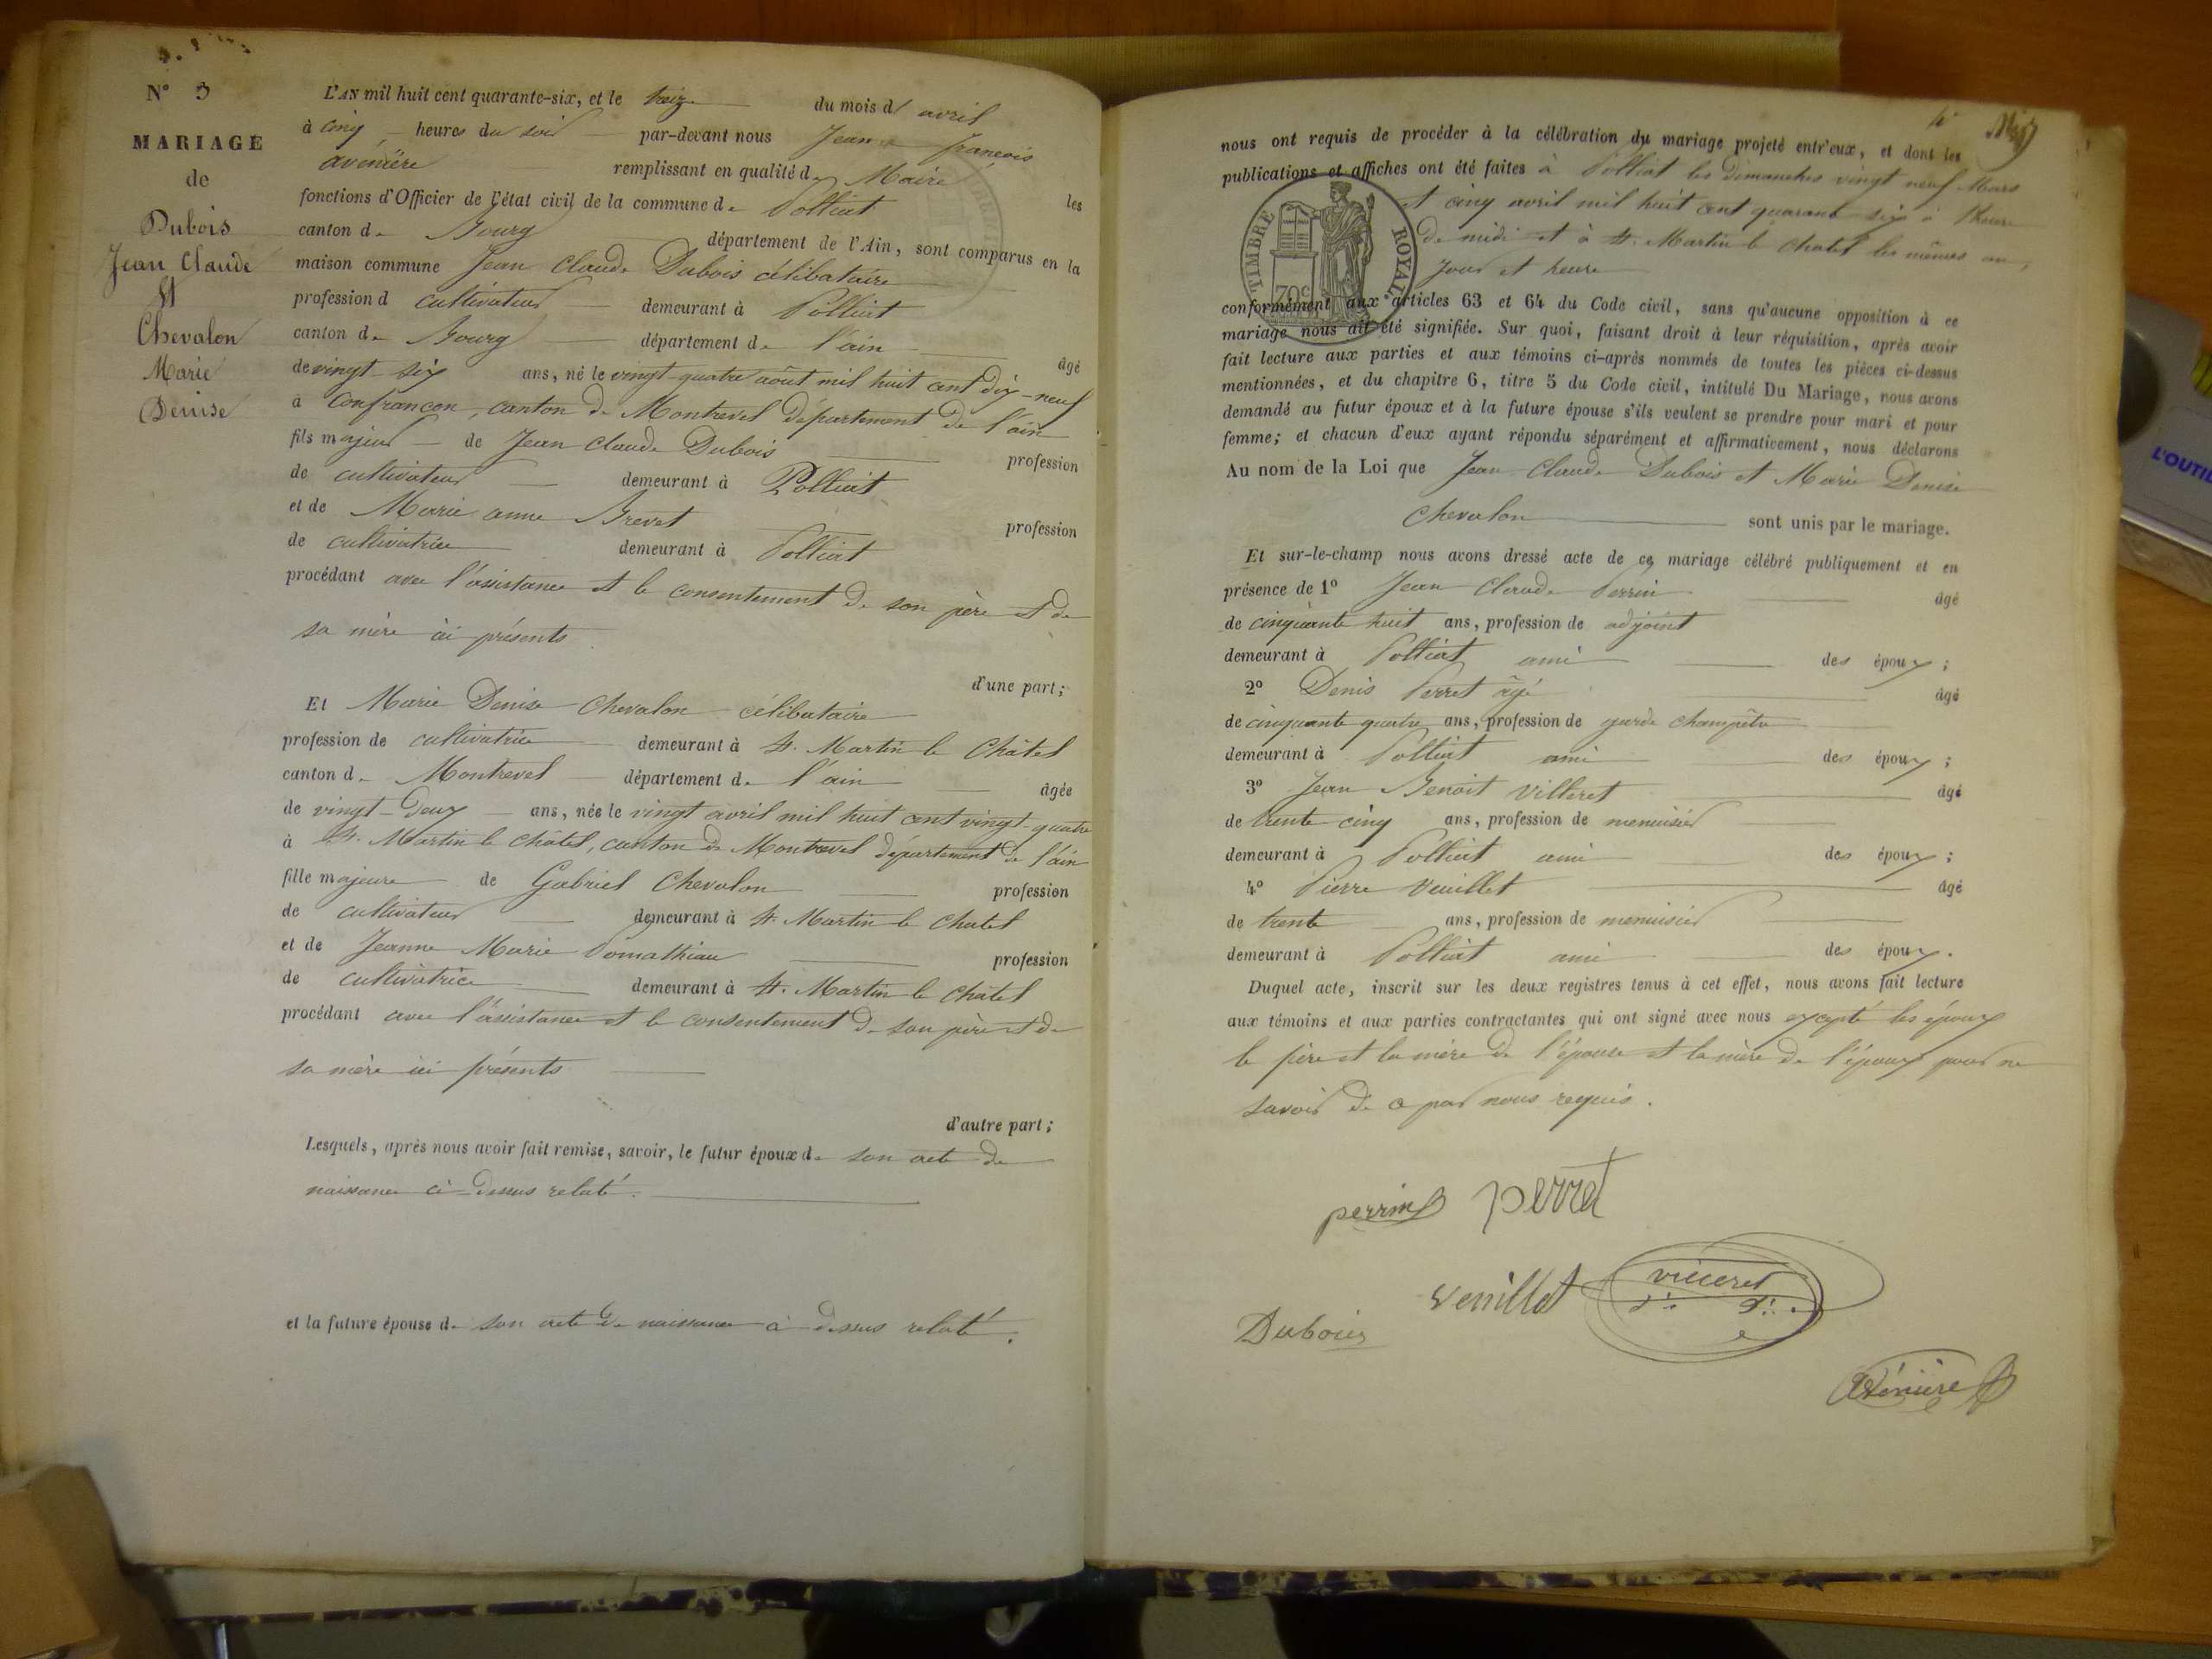 N° 3
MARIAGE
de
Dubois
Jean Claude
Et
Chevalon
Marie
Denise
L'AN mil huit cent quarante-six, et le treize du mois d' avril
à cinq heures du soir par-devant nous Jean François
avenière remplissant en qualité de Maire les
fonctions d'Officier de l'état civil de la commune de Polliat
canton de Bourg département de l'Ain, sont comparus en la
maison commune Jean Claude Dubois célibataire
profession d cultivateur demeurant à Polliat
canton de Bourg département de l'ain âgé
de vingt-six ans, né le vingt-quatre août mil huit cent dix-neuf
à Confrancon, canton de Montrevel département de l'ain
fils majeur de Jean Claude Dubois profession
de cultivateur demeurant à Polliat
et de Marie anne Brevet profession
de cultivatrice demeurant à Polliat
procédant avec l'assistance et le consentement de son père et de
sa mère ici présents
d'une part;
Et Marie Denise Chevalon célibataire
profession de cultivatrice demeurant à St. Martin le Châtel
canton de Montrevel département de l'ain âgée
de vingt-deux ans, née le vingt avril mil huit cent vingt-quatre
à St. Martin le Châtel, canton de Montrevel département de l'ain
fille majeure de Gabriel Chevalon profession
de cultivateur demeurant à St. Martin le Chatel
et de Jeanne Marie Pomathiau profession
de cultivatrice demeurant à St. Martin le Châtel
procédant avec l'assistance et le consentement de son père et de
sa mère ici présents
d'autre part;
Lesquels, après nous avoir fait remise, savoir, le futur époux de son acte de
naissance ci-dessus relaté.
et la future épouse de son acte de naissance ci dessus relaté.
4
nous ont requis de procéder à la célébration du mariage projeté entr'eux, et dont les
publications et affiches ont été faites à Polliat les dimanches vingt neuf Mars
et cinq avril mil huit cent quarante six à l'heure
de midi et à St. Martin le Chatel les mêmes an,
jour et heure
TIMBRE ROYAL
70c
conformément aux articles 63 et 64 du Code civil, sans qu'aucune opposition à ce
mariage nous ait été signifiée. Sur quoi, faisant droit à leur réquisition, après avoir
fait lecture aux parties et aux témoins ci-après nommés de toutes les pièces ci-dessus
mentionnées, et du chapitre 6, titre 5 du Code civil, intitulé Du Mariage, nous avons
demandé au futur époux et à la future épouse s'ils veulent se prendre pour mari et pour
femme; et chacun d'eux ayant répondu séparément et affirmativement, nous déclarons
Au nom de la Loi que Jean Claude Dubois et Marie Denise
Chevalon sont unis par le mariage.
Et sur-le-champ nous avons dressé acte de ce mariage célébré publiquement et en
présence de 1° Jean Claude Perrin âgé
de cinquante huit ans, profession de adjoint
demeurant à Polliat ami des époux;
2° Denis Perret âgé âgé
de cinquante quatre ans, profession de garde champêtre
demeurant à Polliat ami des époux;
3° Jean Benoit Villeret âgé
de trente cinq ans, profession de menuisier
demeurant à Polliat ami des époux;
4° Pierre Veuillet âgé
de trente ans, profession de menuisier
demeurant à Polliat ami des époux.
Duquel acte, inscrit sur les deux registres tenus à cet effet, nous avons fait lecture
aux témoins et aux parties contractantes qui ont signé avec nous excepté les époux
le père et la mère de l'épouse et la mère de l'époux pour ne
savoir de ce par nous requis.
perrin perret
veuillet villeret
Dubois
Avenière
L'OUTIL